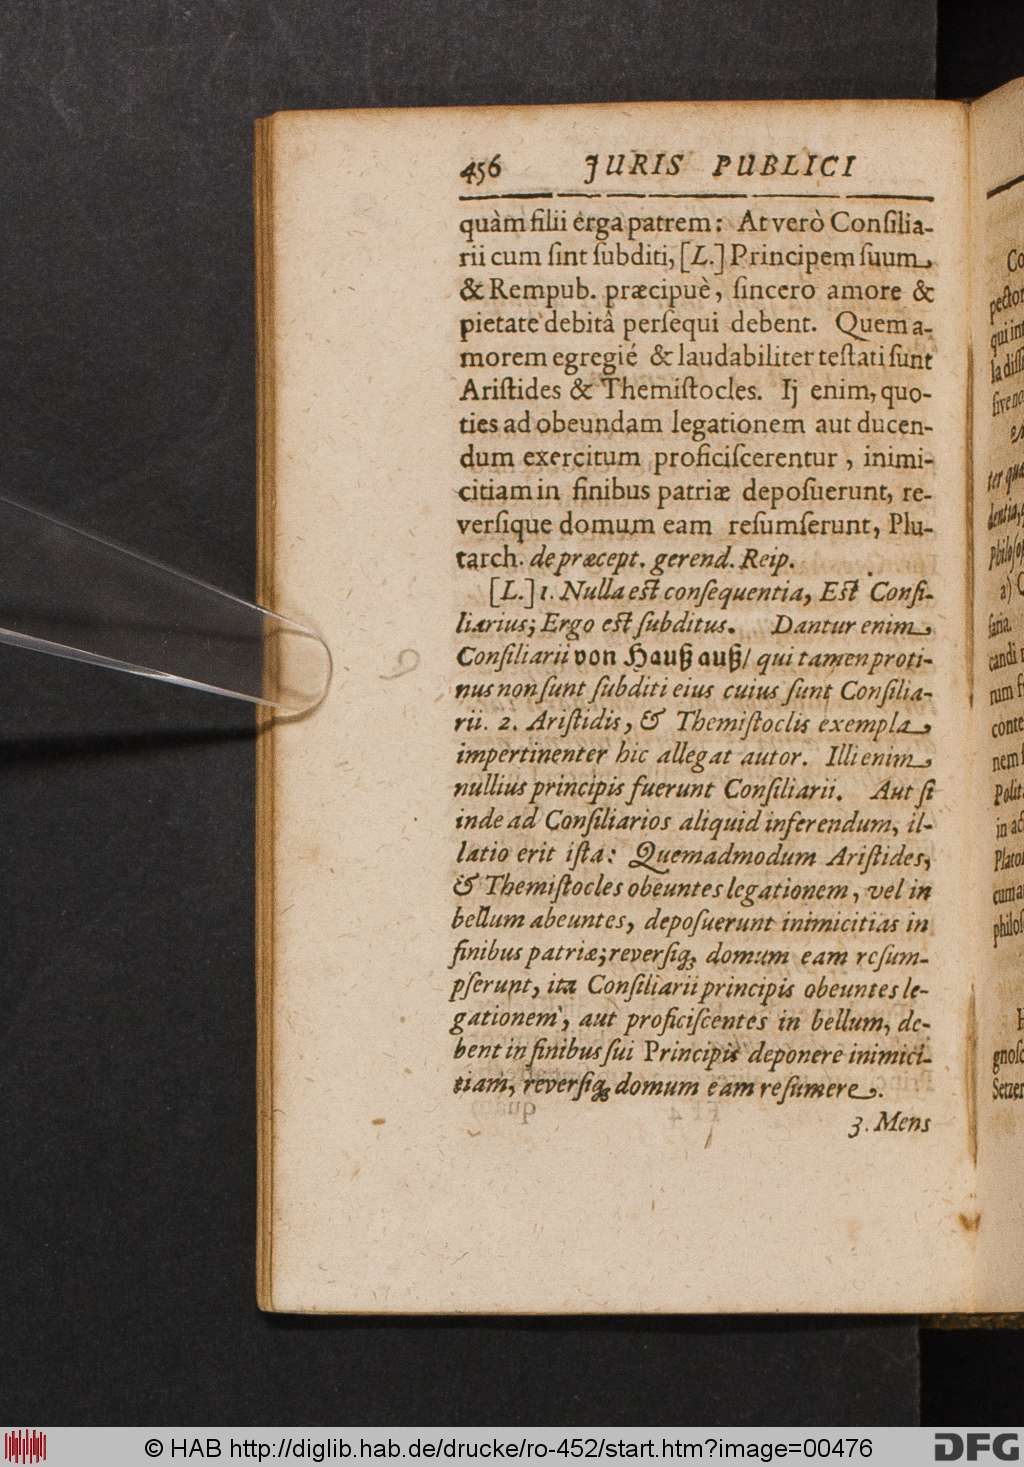 456 JURIS PUBLICI
quàm filii erga patrem: At verò Consilia-
rii cum sint subditi, [L.] Principem suum,
& Rempub. præcipuè, sincero amore &
pietate debitâ persequi debent. Quem a-
morem egregié & laudabiliter testati sunt
Aristides & Themistocles. Ij enim, quo-
ties ad obeundam legationem aut ducen-
dum exercitum proficiscerentur, inimi-
citiam in finibus patriæ deposuerunt, re-
versique domum eam resumserunt, Plu-
tarch. de præcept. gerend. Reip.
[L.] 1. Nulla est consequentia, Est Consi-
liarius; Ergo est subditus. Dantur enim,
Consiliarii von Hauß auß/ qui tamen proti-
nus non sunt subditi eius cuius sunt Consilia-
rii. 2. Aristidis, & Themistoclis exempla,
impertinenter hic allegat autor. Illi enim,
nullius principis fuerunt Consiliarii. Aut si
inde ad Consiliarios aliquid inferendum, il-
latio erit ista: Quemadmodum Aristides,
& Themistocles obeuntes legationem, vel in
bellum abeuntes, deposuerunt inimicitias in
finibus patriæ; reversiq; domum eam resum-
pserunt, ita Consiliarii principis obeuntes le-
gationem, aut proficiscentes in bellum, de-
bent in finibus sui Principis deponere inimici-
tiam, reversiq; domum eam resumere.
3. Mens
Co
pector
qui in
la diss
sive no
ter qua
dentia,
Philosop
a) C
saria.
candi
rum f
conte
nem
Polit
in ac
Plato
cum a
philos
H
gnosc
Setzer
© HAB http://diglib.hab.de/drucke/ro-452/start.htm?image=00476
DFG